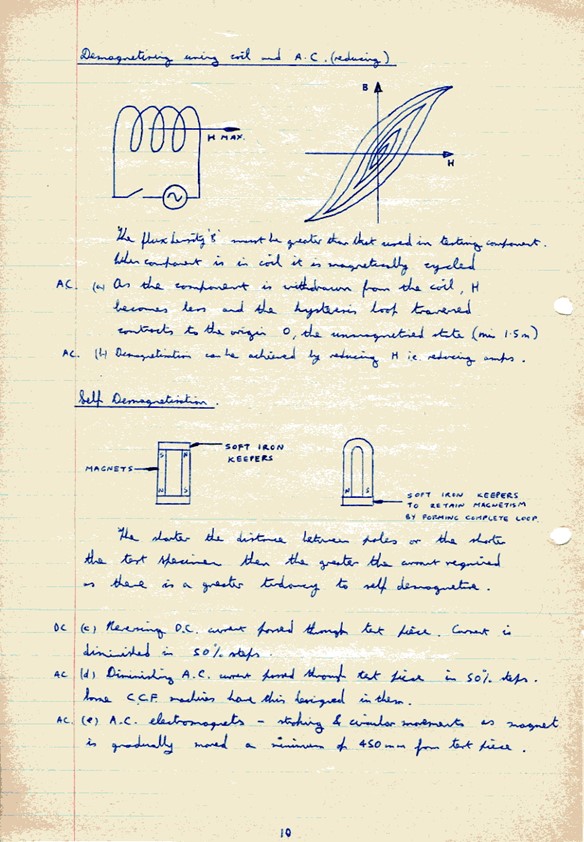 Demagnetising using coil and A.C. (reducing)
B
H MAX.
H
The flux density 'B' must be greater than that used in testing component.
When component is in coil it is magnetically cycled
AC. (a) As the component is withdrawn from the coil, H
becomes less and the hysteresis loop traversed
contracts to the origin O, the unmagnetised state (min 1.5m)
AC. (b) Demagnetisation can be achieved by reducing H i.e. reducing amps.
Self Demagnetisation.
SOFT IRON
KEEPERS
MAGNETS
S N
N S
N S
SOFT IRON KEEPERS
TO RETAIN MAGNETISM
BY FORMING COMPLETE LOOP.
The shorter the distance between poles or the shorter
the test specimen then the greater the current required
as there is a greater tendency to self demagnetise.
DC (c) Reversing D.C. current passed through test piece. Current is
diminished in 50% steps.
AC (d) Diminishing A.C. current passed through test piece in 50% steps.
Some C.C.F. machines have this designed in them.
AC. (e) A.C. electromagnets - stroking & circular movements as magnet
is gradually moved a minimum of 450mm from test piece.
10